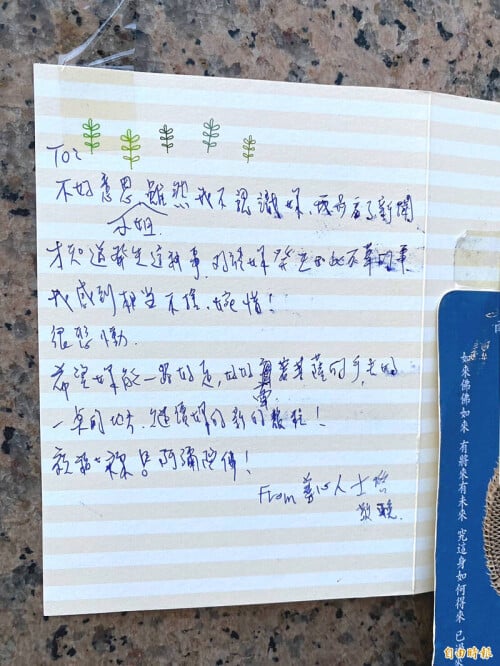 To:
不好意思 雖然我不認識妳、還是看了新聞
小姐
才知道發生這款事、對於妳發生如此不幸的事
我感到相當不捨、惋惜!
很悲慟
希望妳能一路好走,好好 著菩薩的手 去好
一點的地方、繼續妳的新的旅程!
南無 阿彌陀佛!
From 善心人士
敬輓
如來佛佛如來 有將來有未來 究這身如何得來 已
自由時報